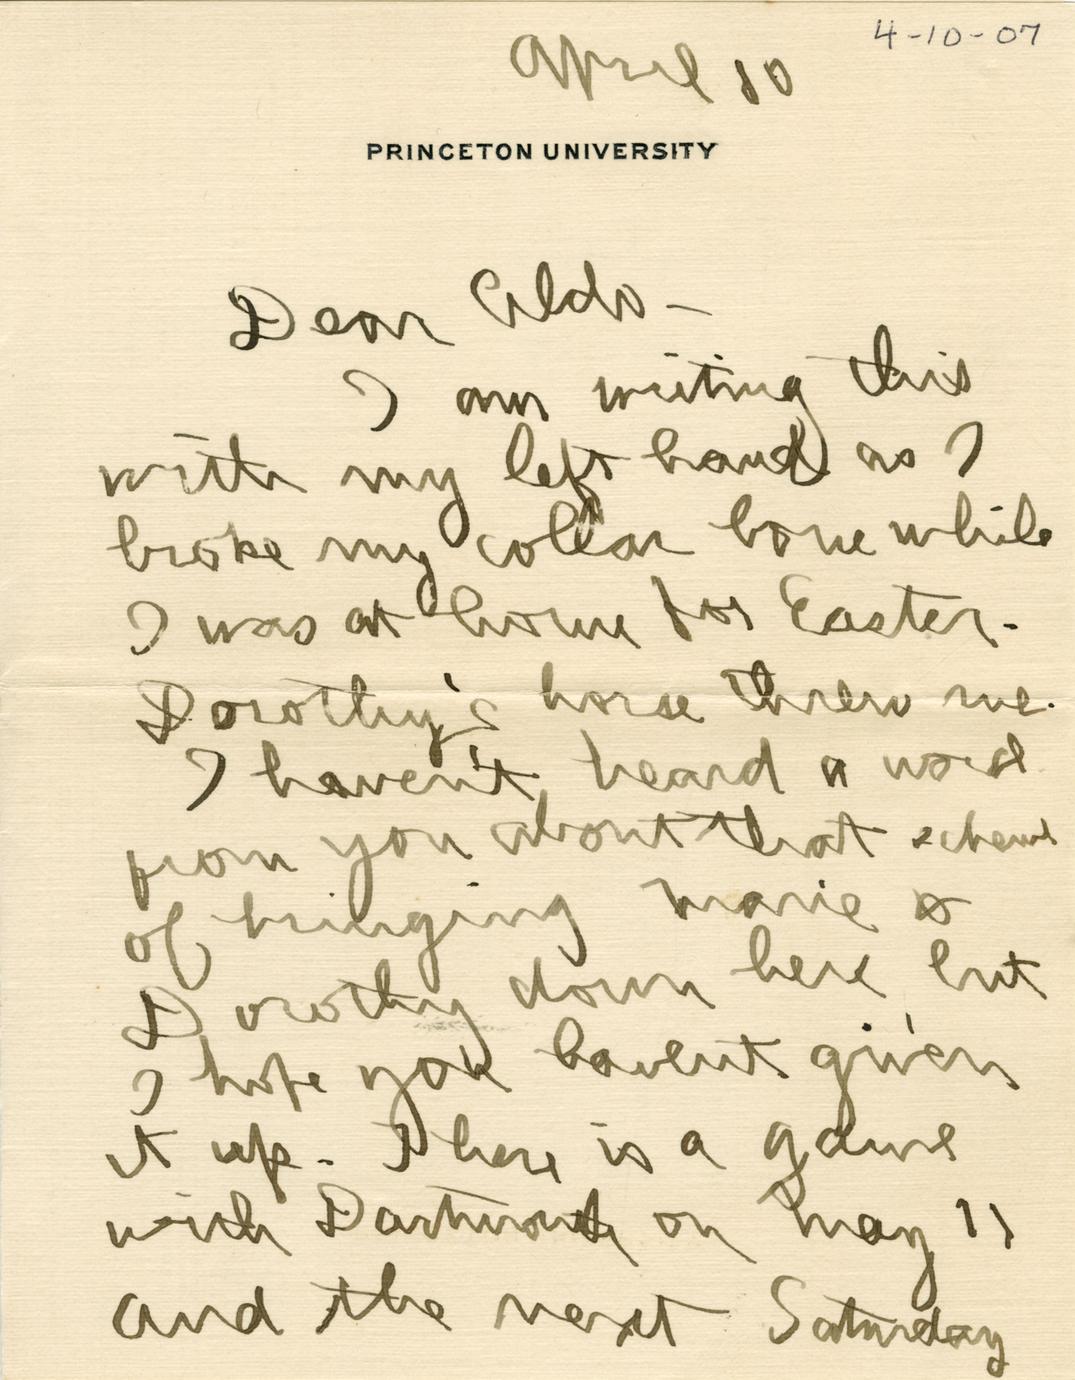 4-10-07
April 10
PRINCETON UNIVERSITY
Dear Aldo -
I am writing this
with my left hand as I
broke my collar bone while
I was at home for Easter.
Dorothy's horse threw me.
I haven't heard a word
from you about that scheme
of bringing Marie &
Dorothy down here but
I hope you havent given
it up. There is a game
with Dartmouth on May 11
and the next Saturday